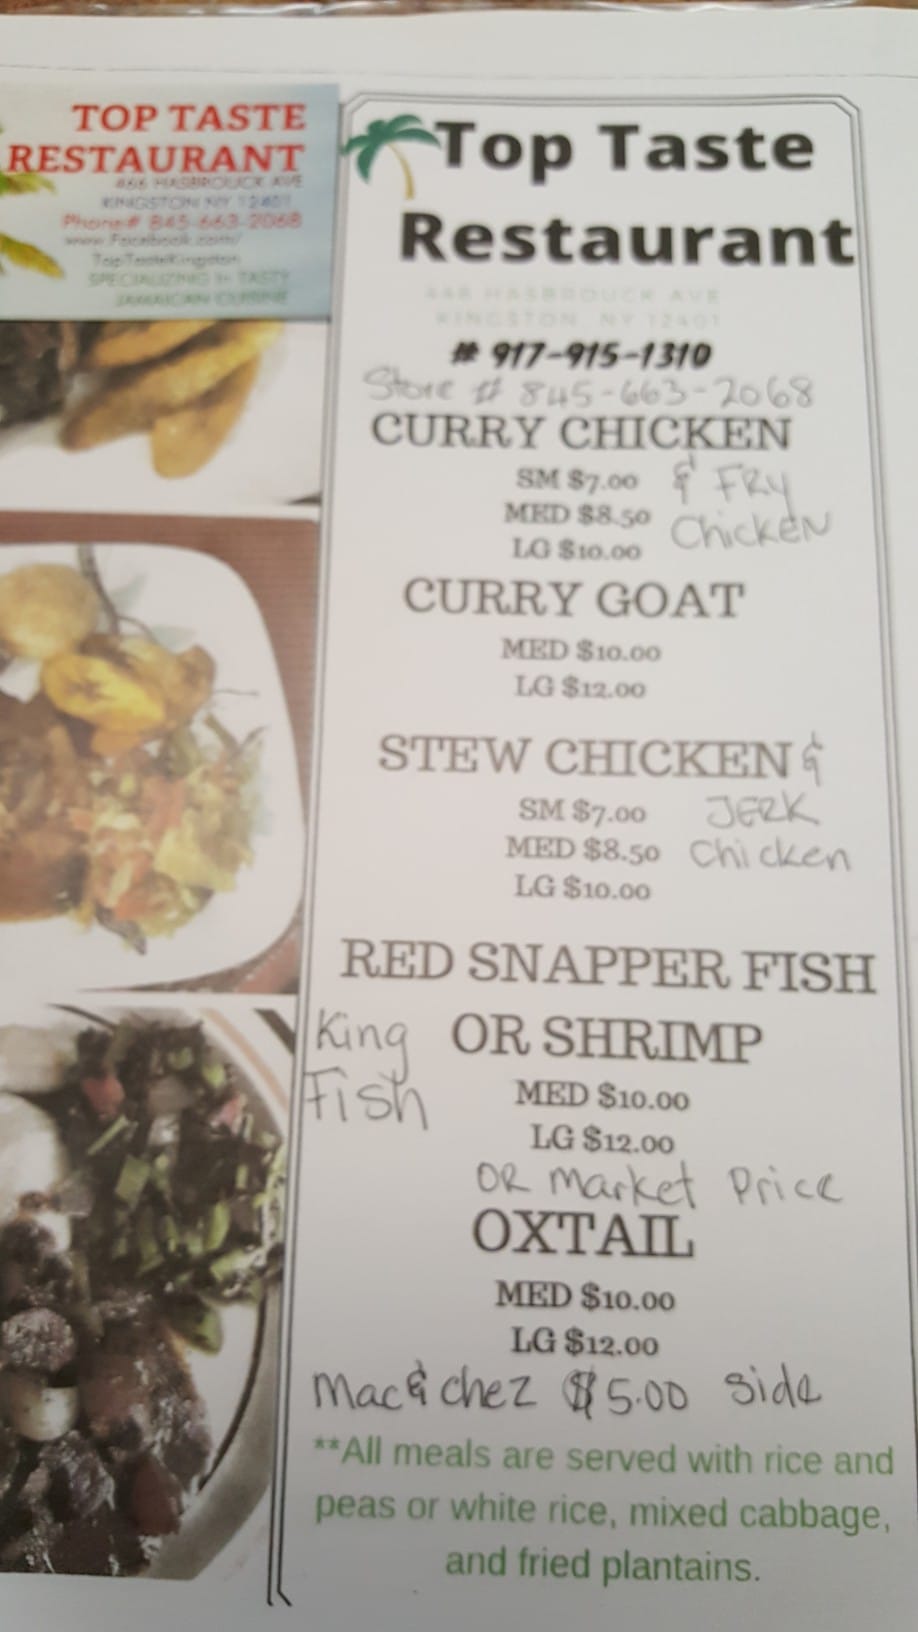 TOP TASTE
RESTAURANT
466 HASBROUCK AVE
KINGSTON NY 12401
Phone# 845-663-2068
www.Facebook.com/
TopTasteKingston
SPECIALIZING In TASTY
JAMAICAN CUISINE
Top Taste
Restaurant
HASBROUCK AVE
KINGSTON, NY 12401
# 917-915-1310
Store # 845-663-2068
CURRY CHICKEN
SM $7.00 & FRY
MED $8.50 Chicken
LG $10.00
CURRY GOAT
MED $10.00
LG $12.00
STEW CHICKEN &
SM $7.00 JERK
MED $8.50 Chicken
LG $10.00
RED SNAPPER FISH
King OR SHRIMP
Fish MED $10.00
LG $12.00
OR Market Price
OXTAIL
MED $10.00
LG $12.00
Mac & chez $5.00 side
**All meals are served with rice and
peas or white rice, mixed cabbage,
and fried plantains.